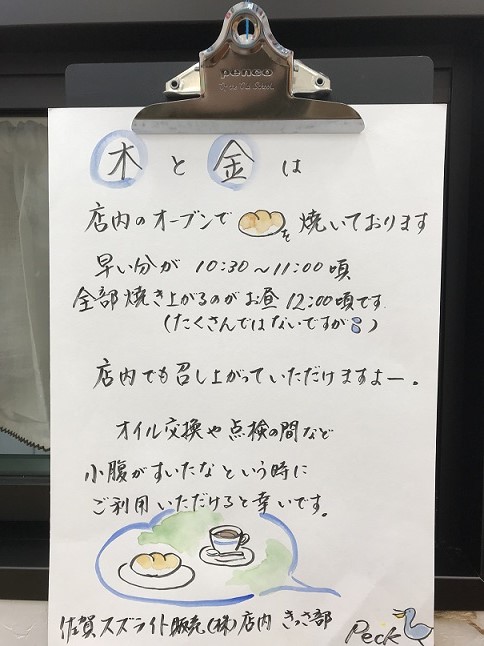 penco
木と金は
店内のオーブンで を焼いております
早い分が 10:30~11:00頃
全部焼き上がるのがお昼12:00頃です
(たくさんではないですが)
店内でも召し上がっていただけますよー。
オイル交換や点検の間など
小腹がすいたなという時に
ご利用いただけると幸いです。
佐賀スズライト販売(株)店内 きっさ部
Peck